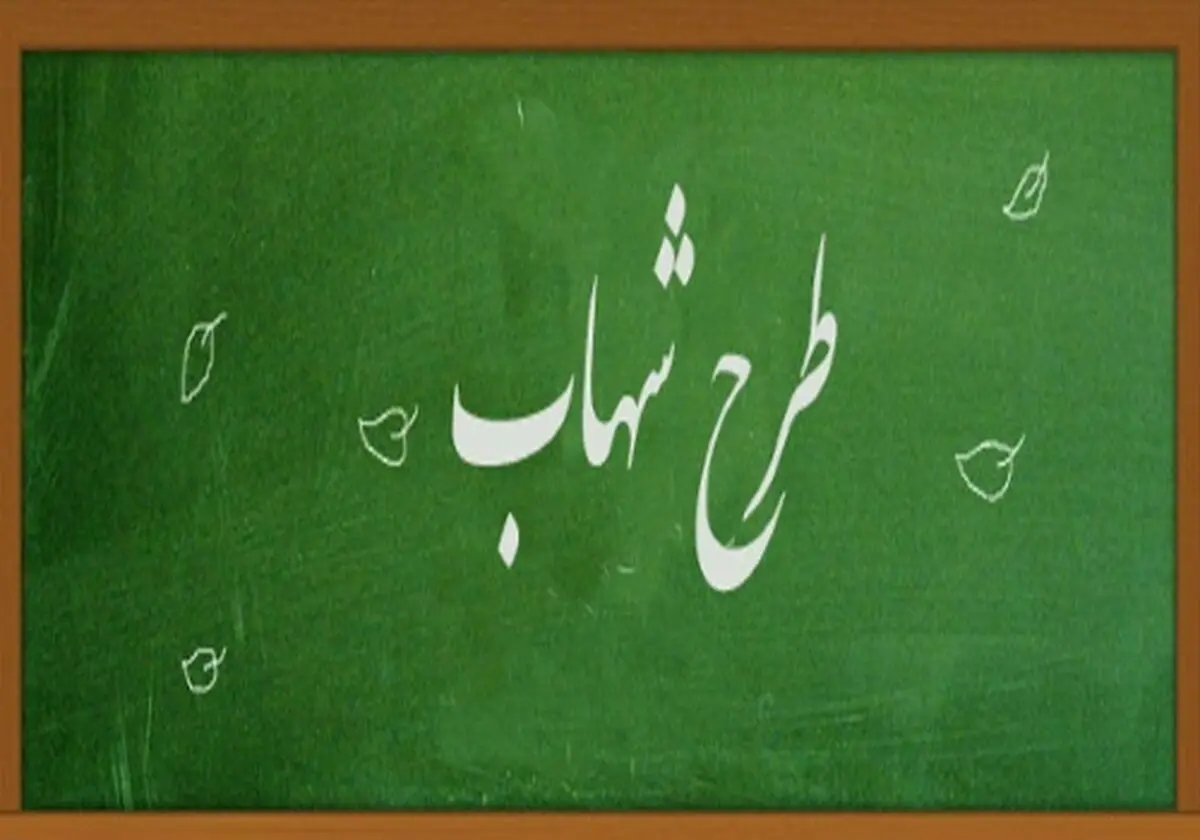 طرح شهاب